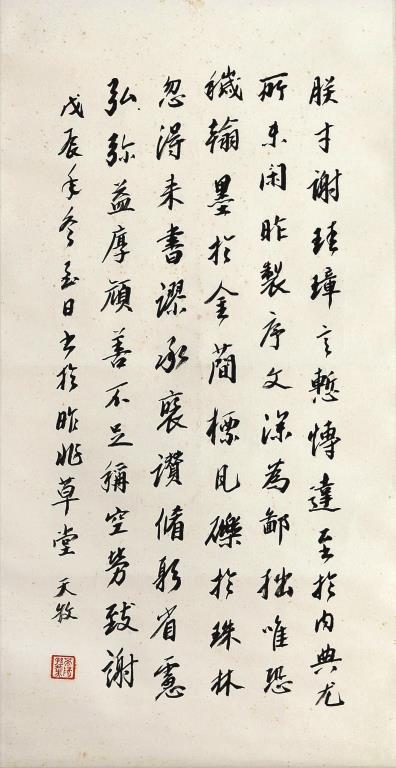 朕才謝珪璋言慙博達至於内典尤
所未閑昨製序文深為鄙拙唯恐
穢翰墨於金簡標瓦礫於珠林
忽得来書謬承褒讚脩躬省慮
弘弥益厚顔善不足稱空勞致謝
戊辰年冬至日書於昨非草堂 天牧